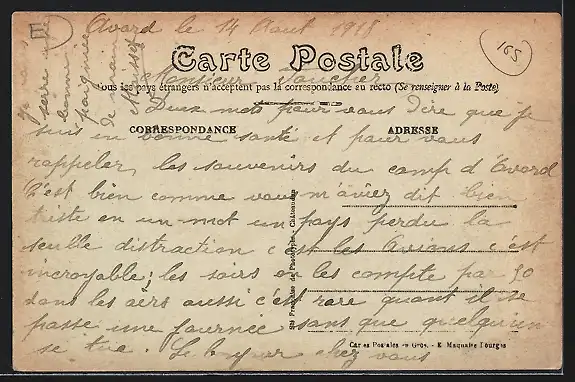 Avord le 14 Aout 1918
165
Carte Postale
Monsieur Faucher
Tous les pays étrangers n'acceptent pas la correspondance au recto (Se renseigner à la Poste)
Deux mots pour vous dire que je
suis en bonne santé et pour vous
CORRESPONDANCE
ADRESSE
rappeler les souvenirs du camp d'Avord
C'est bien comme vous m'aviez dit bien
triste en un mot un pays perdu la
seulle distraction c'est les Avions c'est
incroyable; les soirs on les compte par 50
dans les aers aussi c'est rare quant il se
passe une journée sans que quelqu'un
se tue. Le bonjour chez vous
Je vous serre une bonne poignée de main
Sté Française de Phototypie, Châteauroux
Cartes Postales en Gros. - E. Maquaire Bourges